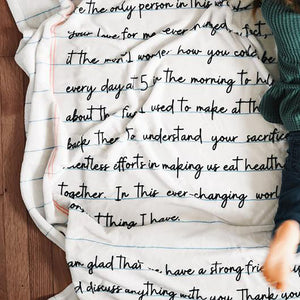 e the only person in this w
your love for me ever
it the m I wonder how you could be
every day at 5 in the morning to h
about the fu I used to make at th
back then to understand your sacrifice
entless efforts in making us eat health
together. In this ever-changing world
t thing I have.
am glad that we have a strong frien
d discuss anything with you. Thank you